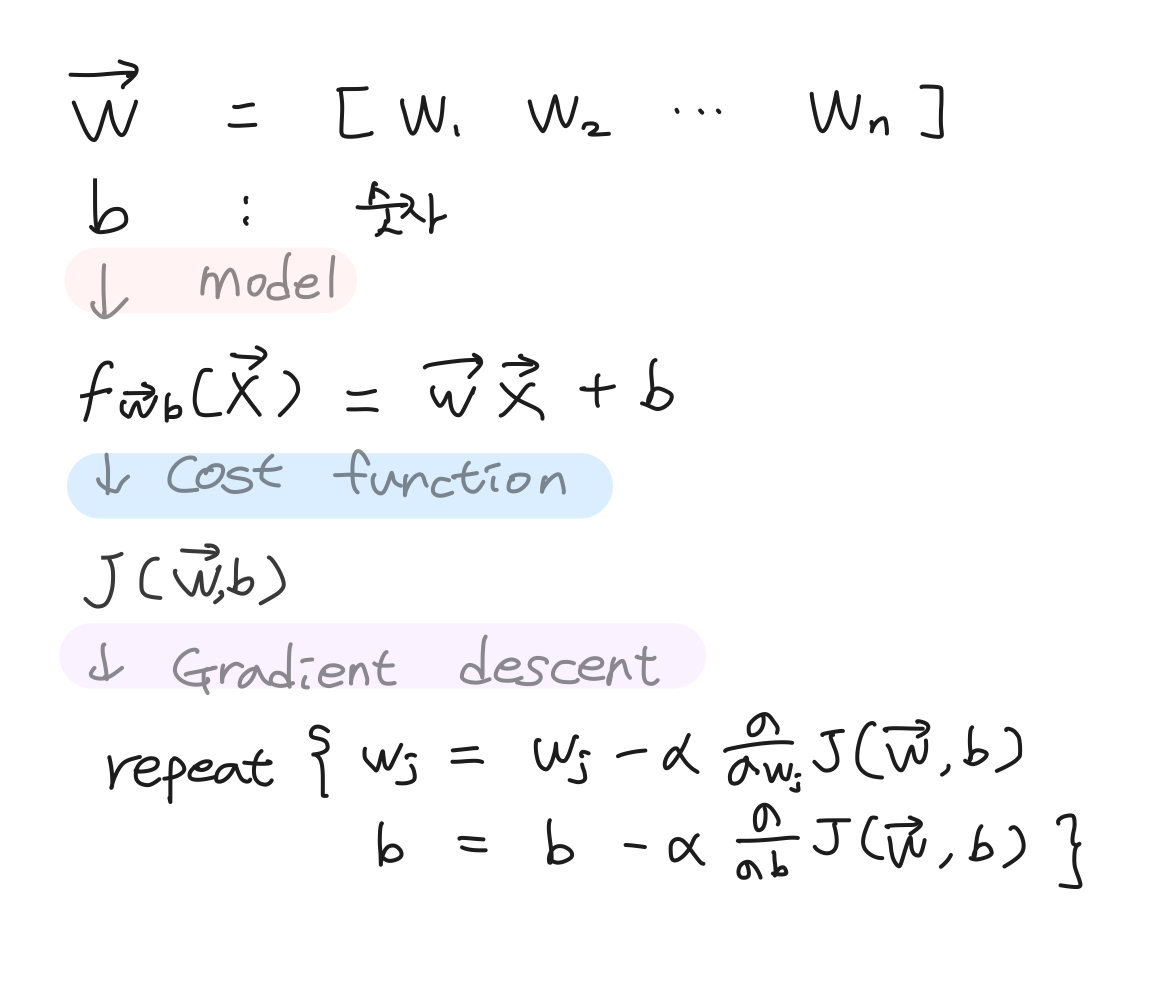 w⃗ = [ w₁ w₂ ⋯ wₙ ]
b : 숫자
↓ model
f_w⃗b(x⃗) = w⃗ x⃗ + b
↓ Cost function
J(w⃗,b)
↓ Gradient descent
repeat { wⱼ = wⱼ - α ∂/∂wⱼ J(w⃗, b)
b = b - α ∂/∂b J(w⃗, b) }